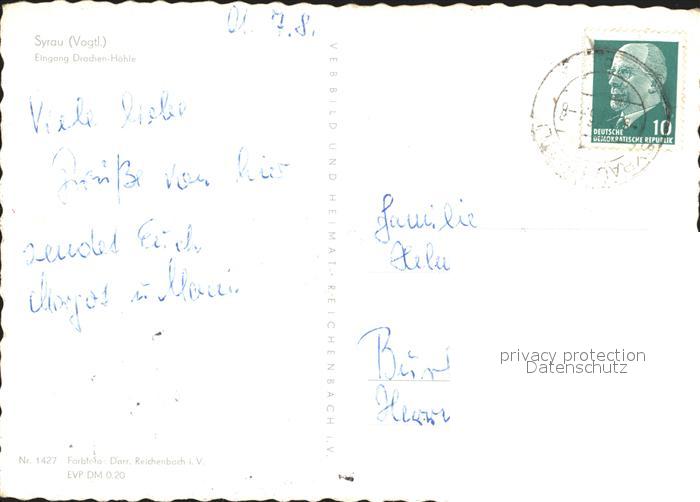 Syrau (Vogtl.)
Eingang Drachen-Höhle
01. 7. 8.
Viele liebe
Grüße von hier
sendet Euch
Margot u
DEUTSCHE
DEMOKRATISCHE REPUBLIK
10
VEB BILD UND HEIMAT · REICHENBACH i. V.
Familie
privacy protection
Datenschutz
Nr. 1427 Farbfoto: Darr, Reichenbach i. V.
EVP DM 0.20